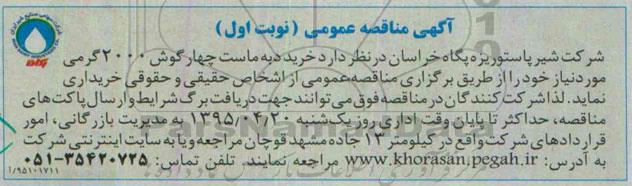 آگهی مناقصه عمومی (نوبت اول)
شرکت شیر پاستوریزه پگاه خراسان در نظر دارد خرید دبه ماست چهارگوش ۲۰۰۰ گرمی
مورد نیاز خود را از طریق برگزاری مناقصه عمومی از اشخاص حقیقی و حقوقی خریداری
نماید. لذا شرکت کنندگان در مناقصه فوق می توانند جهت دریافت برگ شرایط و ارسال پاکت های
مناقصه، حداکثر تا پایان وقت اداری روز یکشنبه ۱۳۹۵/۰۴/۲۰ به مدیریت بازرگانی، امور
قراردادهای شرکت واقع در کیلومتر ۱۳ جاده مشهد قوچان مراجعه و یا به سایت اینترنتی شرکت
به آدرس: www.khorasan.pegah.ir مراجعه نمایند. تلفن تماس: ۳۵۴۲۰۷۲۵-۰۵۱
/۹۵۱۰۱۷۱۱
ParsNamadData